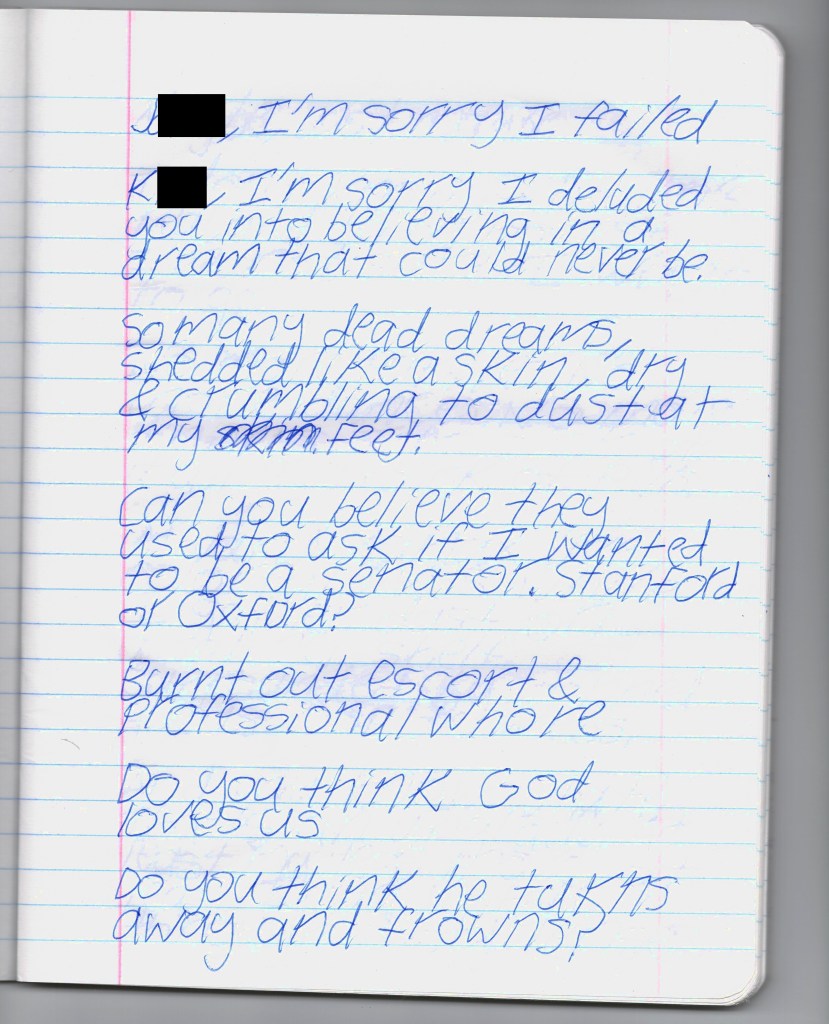 , I'm sorry I failed
K , I'm sorry I deluded
you into believing in a
dream that could never be.
so many dead dreams,
shedded like a skin, dry
& crumbling to dust at
my feet.
Can you believe they
used to ask if I wanted
to be a senator. Stanford
or Oxford?
Burnt out escort &
professional whore
Do you think God
loves us
Do you think he turns
away and frowns?